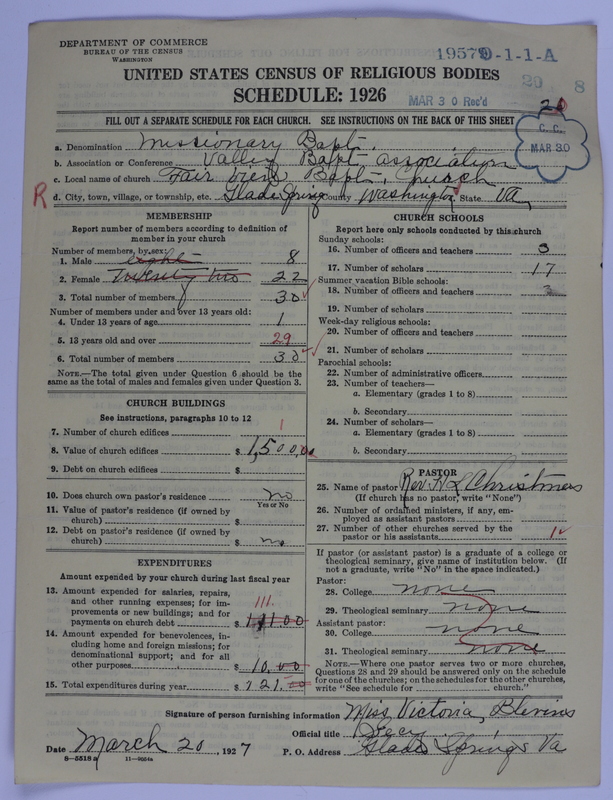 DEPARTMENT OF COMMERCE
BUREAU OF THE CENSUS
WASHINGTON
19579-1-1-A
UNITED STATES CENSUS OF RELIGIOUS BODIES
20 8
SCHEDULE: 1926
MAR 30 Rec'd
FILL OUT A SEPARATE SCHEDULE FOR EACH CHURCH. SEE INSTRUCTIONS ON THE BACK OF THIS SHEET
C. C.
MAR 30
a. Denomination Missionary Bapt.
b. Association or Conference Valley Bapt association
c. Local name of church Fair View Bapt. Church
R d. City, town, village, or township, etc. Glade Spring County Washington State Va,
MEMBERSHIP
Report number of members according to definition of
member in your church
Number of members, by sex:
1. Male eight 8
2. Female Twenty two 22
3. Total number of members 30
Number of members under and over 13 years old:
4. Under 13 years of age 1
5. 13 years old and over 29
6. Total number of members 30
NOTE.—The total given under Question 6 should be the
same as the total of males and females given under Question 3.
CHURCH BUILDINGS
See instructions, paragraphs 10 to 12
7. Number of church edifices 1
8. Value of church edifices $ 1,500.00
9. Debt on church edifices $
10. Does church own pastor's residence no
Yes or No
11. Value of pastor's residence (if owned by
church) $
12. Debt on pastor's residence (if owned by
church) $ no
EXPENDITURES
Amount expended by your church during last fiscal year
13. Amount expended for salaries, repairs,
and other running expenses; for im-
provements or new buildings; and for
payments on church debt $ 111.00
111.
14. Amount expended for benevolences, in-
cluding home and foreign missions; for
denominational support; and for all
other purposes $ 10.00
15. Total expenditures during year $ 121.00
CHURCH SCHOOLS
Report here only schools conducted by this church
Sunday schools:
16. Number of officers and teachers 3
17. Number of scholars 17
Summer vacation Bible schools:
18. Number of officers and teachers
19. Number of scholars
Week-day religious schools:
20. Number of officers and teachers
21. Number of scholars
Parochial schools:
22. Number of administrative officers
23. Number of teachers—
a. Elementary (grades 1 to 8)
b. Secondary
24. Number of scholars—
a. Elementary (grades 1 to 8)
b. Secondary
PASTOR
25. Name of pastor Rev. H L Christmas
(If church has no pastor, write "None")
26. Number of ordained ministers, if any, em-
ployed as assistant pastors
27. Number of other churches served by the
pastor or his assistants 1
If pastor (or assistant pastor) is a graduate of a college or
theological seminary, give name of institution below. (If
not a graduate, write "No" in the space indicated.)
Pastor:
28. College none
29. Theological seminary none
Assistant pastor:
30. College none
31. Theological seminary none
NOTE.—Where one pastor serves two or more churches,
Questions 28 and 29 should be answered only on the schedule
for one of the churches; on the schedules for the other churches,
write "See schedule for church."
Signature of person furnishing information Miss Victoria, Blevins
Official title Secy
Date March 20, 1927 P. O. Address Glade Springs Va
8—5518 a 11—9054a